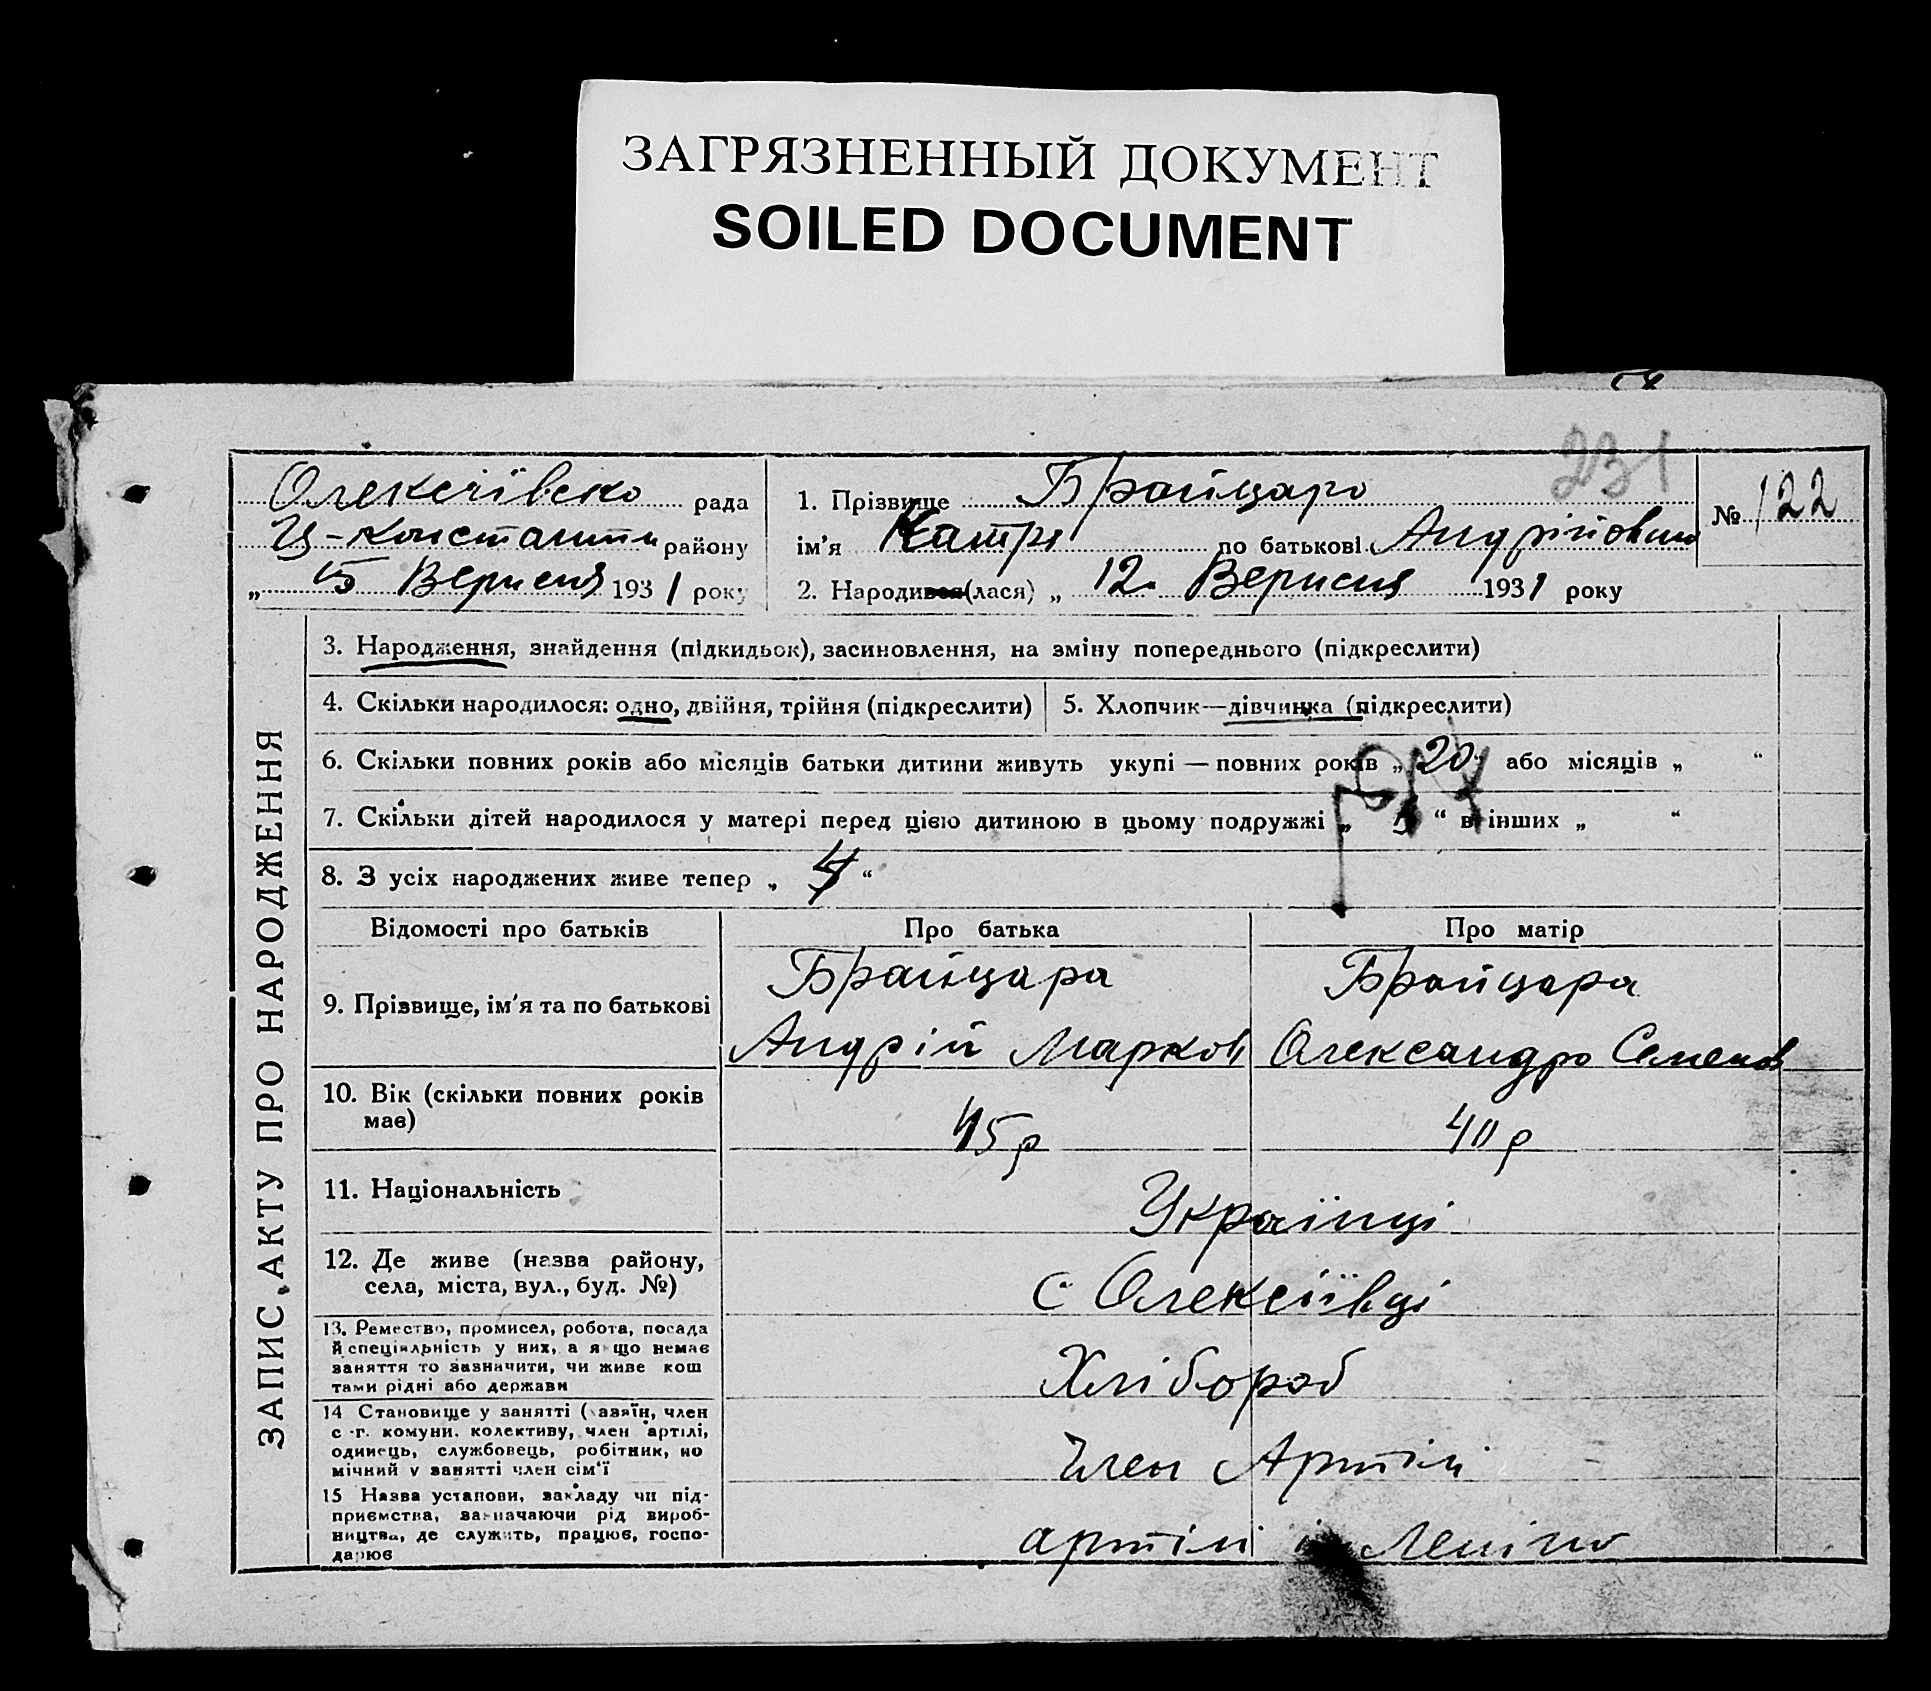 ЗАГРЯЗНЕННЫЙ ДОКУМЕНТ
SOILED DOCUMENT
231
Олексіївсько рада
району
„ 15 Вересня 1931 року
1. Прізвище Брайцара
ім'я Катря по батькові Андрійовна
2. Народився(лася) „ 12 Вересня 1931 року
№ 122
ЗАПИС АКТУ ПРО НАРОДЖЕННЯ
3. Народження, знайдення (підкидьок), засиновлення, на зміну попереднього (підкреслити)
4. Скільки народилося: одно, двійня, трійня (підкреслити)
5. Хлопчик—дівчинка (підкреслити)
6. Скільки повних років або місяців батьки дитини живуть укупі — повних років „ 20 “ або місяців „ “
7. Скільки дітей народилося у матері перед цією дитиною в цьому подружжі „ “ в інших „ “
8. З усіх народжених живе тепер „ 4 “
Відомості про батьків
Про батька
Про матір
9. Прізвище, ім'я та по батькові
Брайцара
Андрій Марков
Брайцара
Олександра Семенов
10. Вік (скільки повних років
має)
45 р
40 р
11. Національність
Українці
12. Де живе (назва району,
села, міста, вул., буд. №)
с Олексіївці
13. Ремество, промисел, робота, посада
й спеціяльність у них, а якщо немає
заняття то зазначити, чи живе кош
тами рідні або держави
Хлібороб
14 Становище у занятті (хазяїн, член
с.-г. комуни, колективу, член артілі,
одинець, службовець, робітник, по
мічний у занятті член сім'ї
Член Артілі
15 Назва установи, закладу чи під-
приємства, зазначаючи рід вироб-
ництва, де служить, працює, госпо-
дарює
артілі і. Леніна